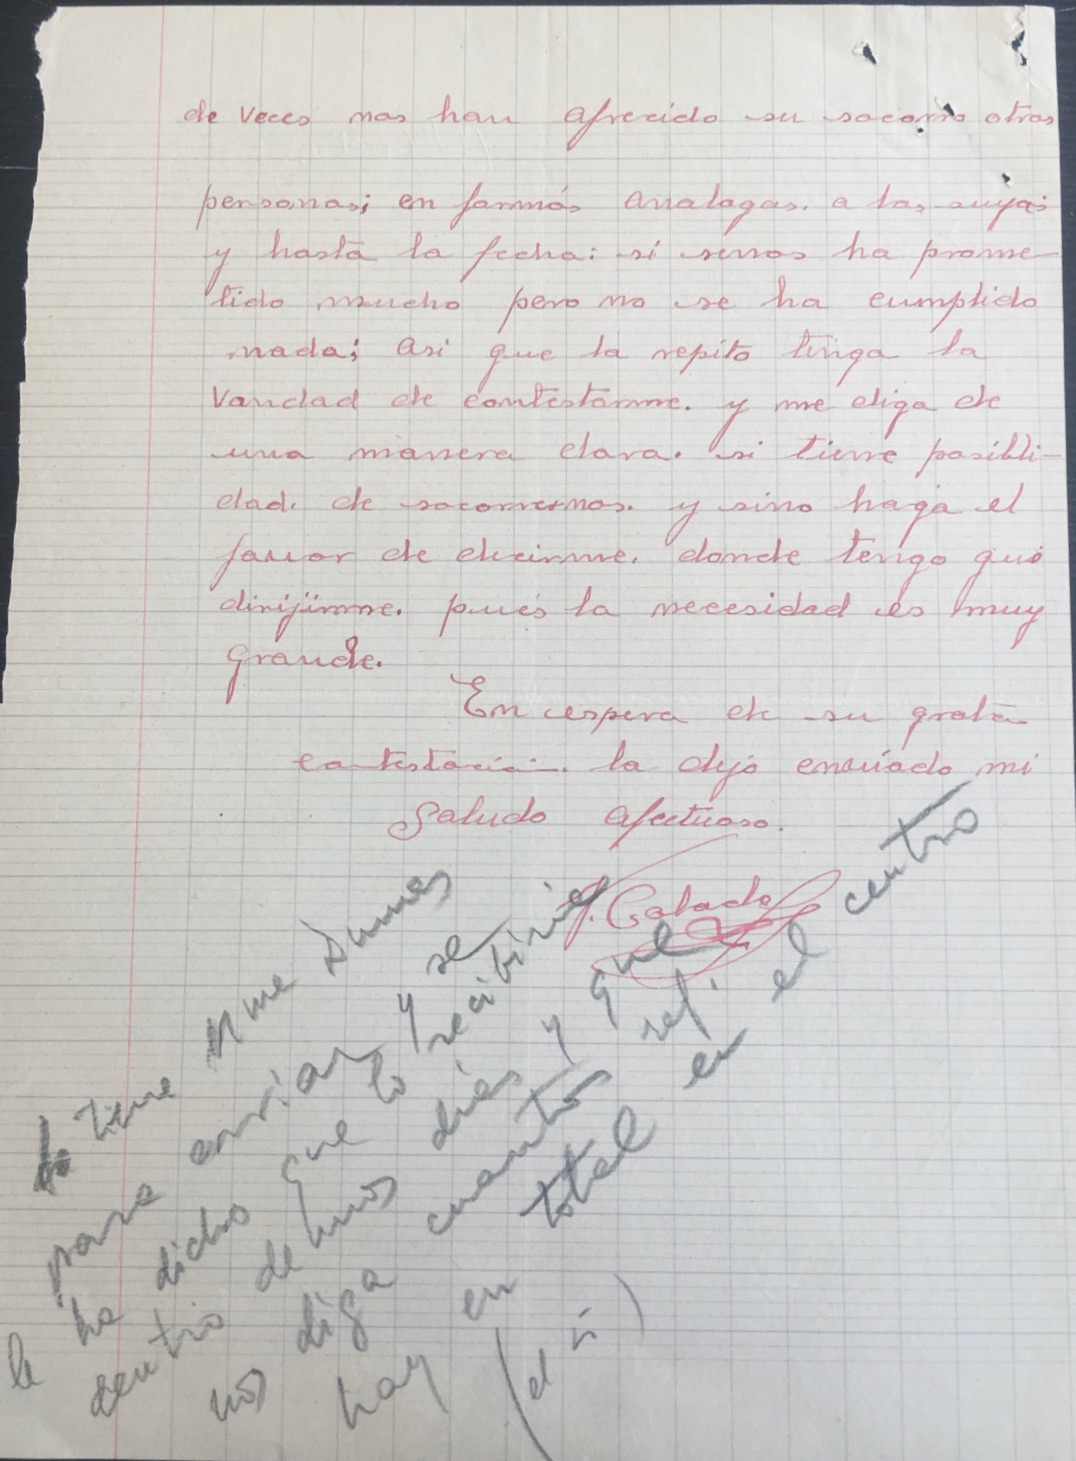 de veces nos han afrecido su socorro otras
personas; en formás analagas. a las suyas
y hasta la fecha: si senos ha prome-
tido mucho pero no se ha cumplido
nada; asi que la repito tenga la
vandad de contestarme. y me diga de
una manera clara. si tiene posibli-
dad. de socorrernos. y sino haga el
favor de decirme. donde tengo que
dirijirme. pués la necesidad es muy
grande.
En espera de su grata
contestacion. la dejo enviado mi
Saludo afectuoso.
J. Galado
tiene
para enviar y se
le ha dicho que lo recibiria
dentro de unos dias y que
nos diga cuantos ref.
hay en total en el centro
(el si)